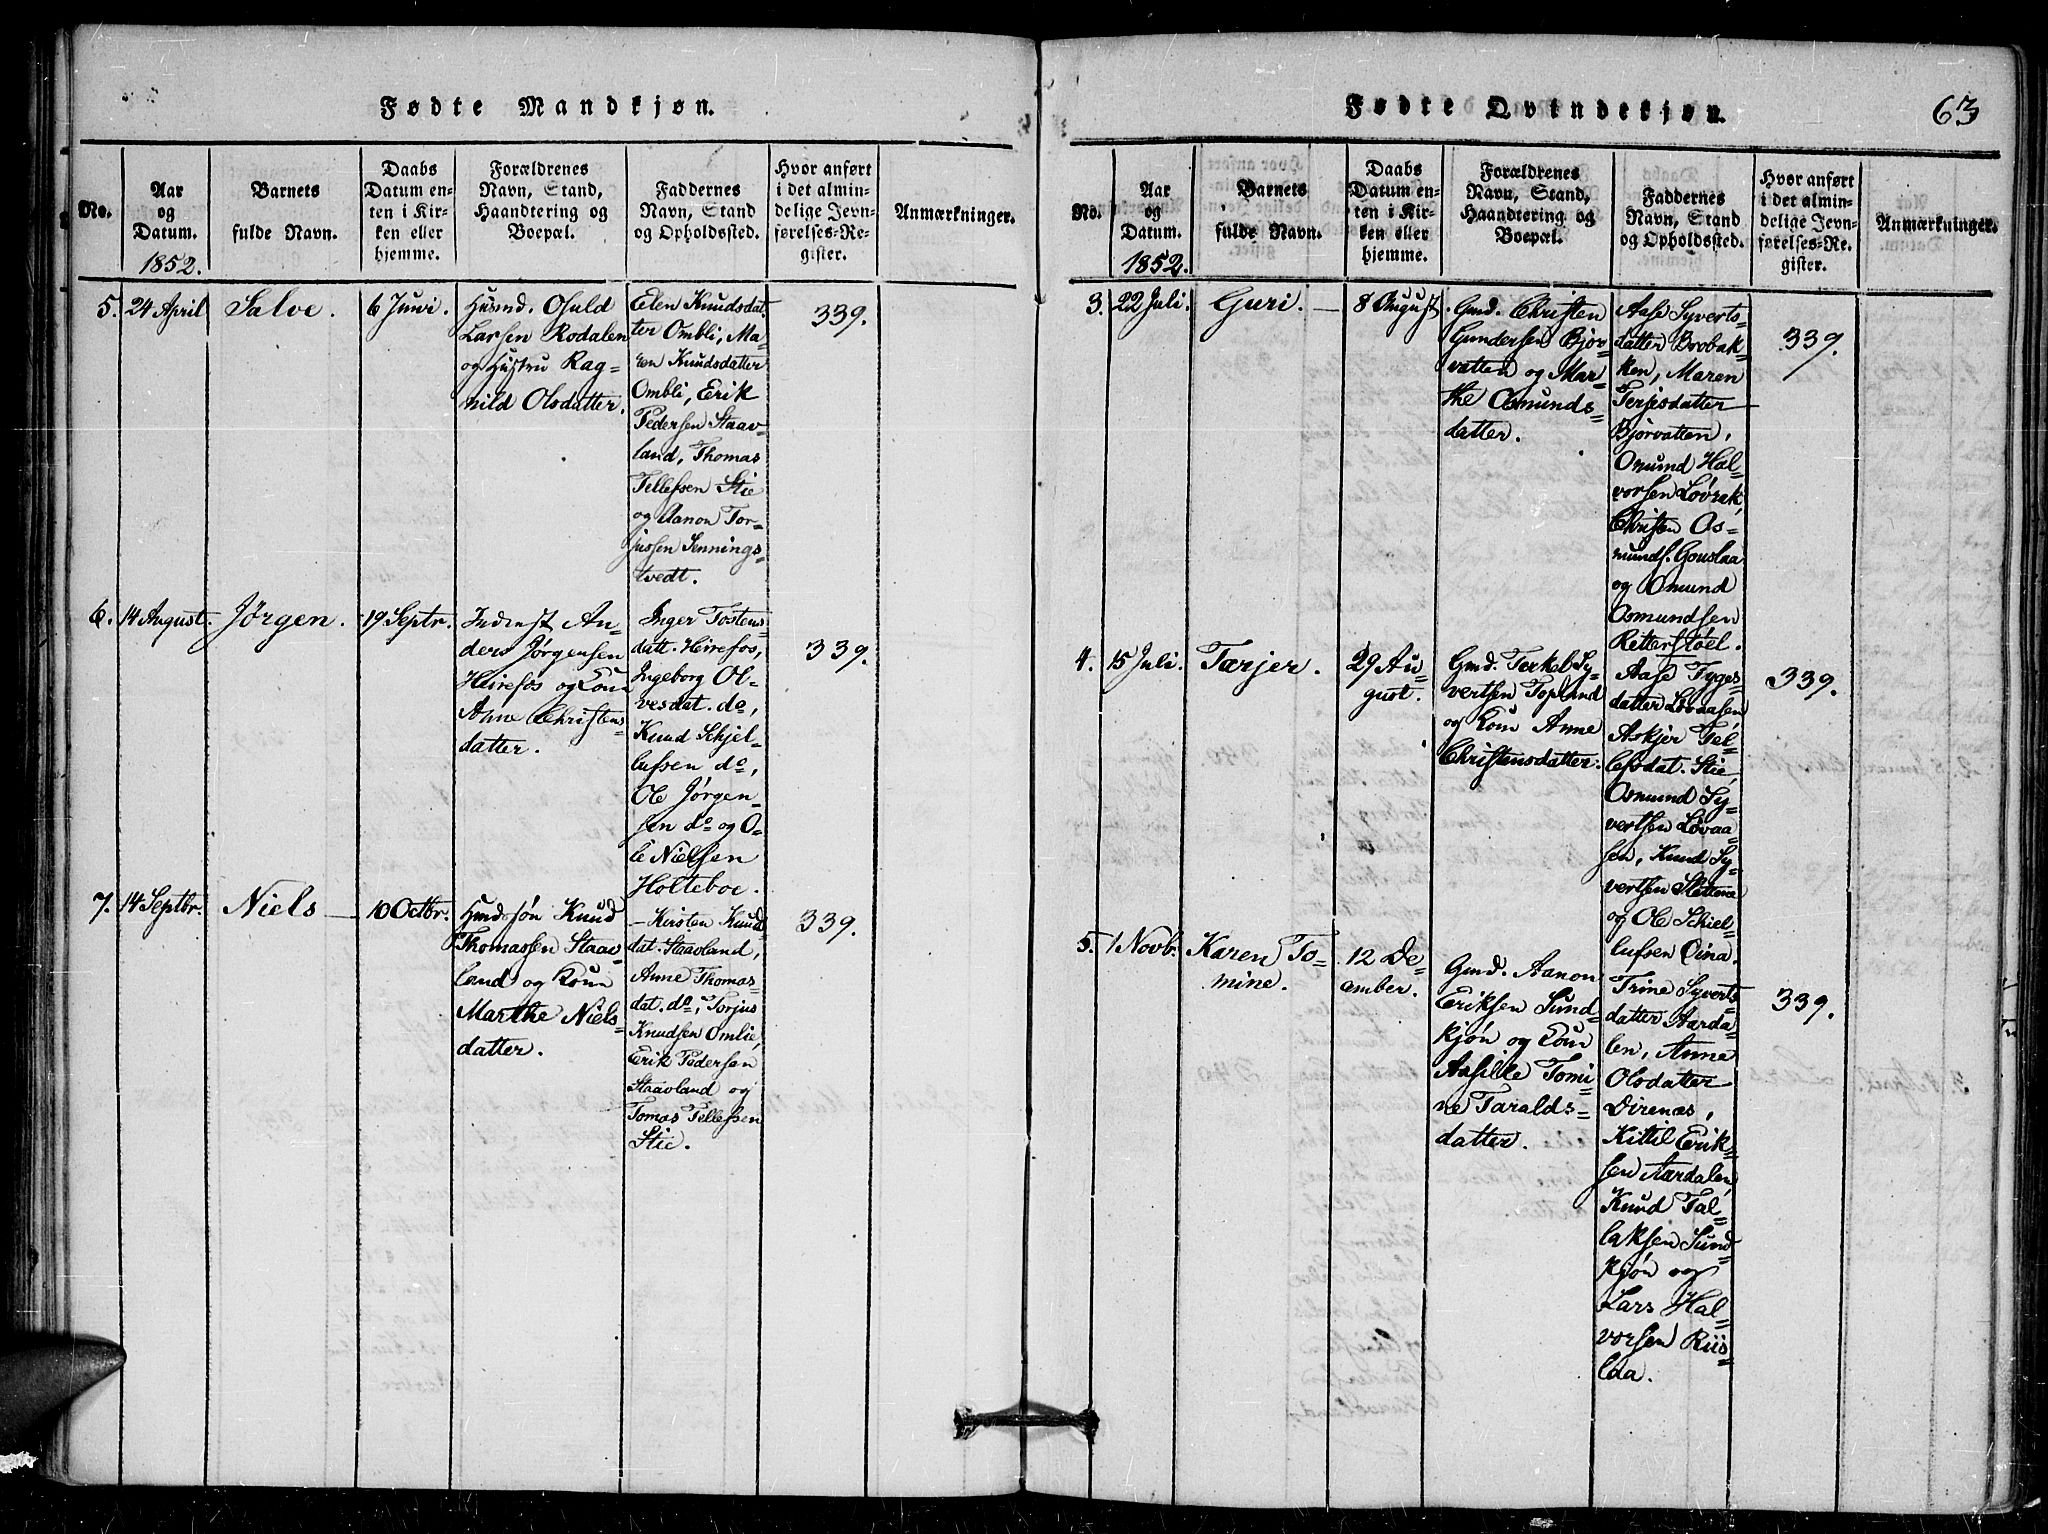 Fødte Mandkjøn.
No.
Aar
og
Datum.
1852.
Barnets
fulde Navn.
Daabs
Datum en-
ten i Kir-
ken eller
hjemme.
Forældrenes
Navn, Stand,
Haandtering og
Boepæl.
Faddernes
Navn, Stand
og Opholdssted.
Hvor anført
i det almin-
delige Jevn-
førelses-Re-
gister.
Anmærkninger.
5.
24 April
Salve.
6 Juni
Husmd. Osuld
Larsen Rodalen
og Hustru Rag=
nild Olsdatter.
Elen Knudsdat=
ter Ombli, Ma=
ren Knudsdatter
Ombli, Erik
Pedersen Staav=
land, Thomas
Tellefsen Stie
og Aanon Tor=
jussen Jennings=
tvedt.
339.
6.
14 August.
Jørgen.
19 Septr.
Inderst An=
ders Jørgensen
Heirefos og Kone
Anne Christens
datter.
Inger Tostens=
datt. Heirefos,
Ingeborg Ol=
vesdat. do,
Knud Schjel=
lufsen do,
Ole Jørgen=
sen do og O=
le Nielsen
Holteboe.
339.
7.
14 Septbr.
Niels
10 Octbr.
Gmdssøn Knud
Thomassen Staav=
land og Kone
Marthe Niels=
datter.
Kirsten Knud
dat. Staavland,
Anne Thomas=
dat. do, Torjus
Knudsen Omlie,
Erik Pedersen
Staavland og
Tomas Tellefsen
Stie.
339.
Fødte Qvindekjøn.
63
No.
Aar
og
Datum.
1852.
Barnets
fulde Navn.
Daabs
Datum en-
ten i Kir-
ken eller
hjemme.
Forældrenes
Navn, Stand,
Haandtering og
Boepæl.
Faddernes
Navn, Stand
og Opholdssted.
Hvor anført
i det almin-
delige Jevn-
førelses-Re-
gister.
Anmærkninger.
3.
22 Juli.
Guri.
8 August
Gmd. Christen
Gundersen Bjor=
vatten og Mar=
the Osmunds=
datter.
Aase Syverts=
datter Brobak=
ken, Maren
Terjesdatter
Bjorvatten,
Omund Hal=
vorsen Løvrak,
Christen Os=
munds. Gouslaa
og Omund
Osmundsen
Retterstøel.
339.
4.
15 Juli.
Tarjer.
29 Au=
gust.
Gmd. Terkel Sy=
vertsen Topland
og Kone Anne
Christensdatter.
Aase Tyges=
datter Løvaasen,
Askjer Tel=
lefsdat. Stie,
Osmund Sy=
vertsen Løvaa=
sen, Knud Sy=
vertsen Slettene
og Ole Schiel=
lufsen Oina.
339.
5.
1 Novb.
Karen To=
mine.
12 De=
cember.
Gmd. Aanon
Eriksen Sund=
kjøn og Kone
Aasille Tomi=
ne Taralds=
datter.
Trine Syverts
datter Aarda=
len, Anne
Olsdatter
Direnæs,
Kittil Erik=
sen Aardalen,
Knud Tal=
laksen Sund=
kjøn og
Lars Hal=
vorsen Riis=
laa.
339.